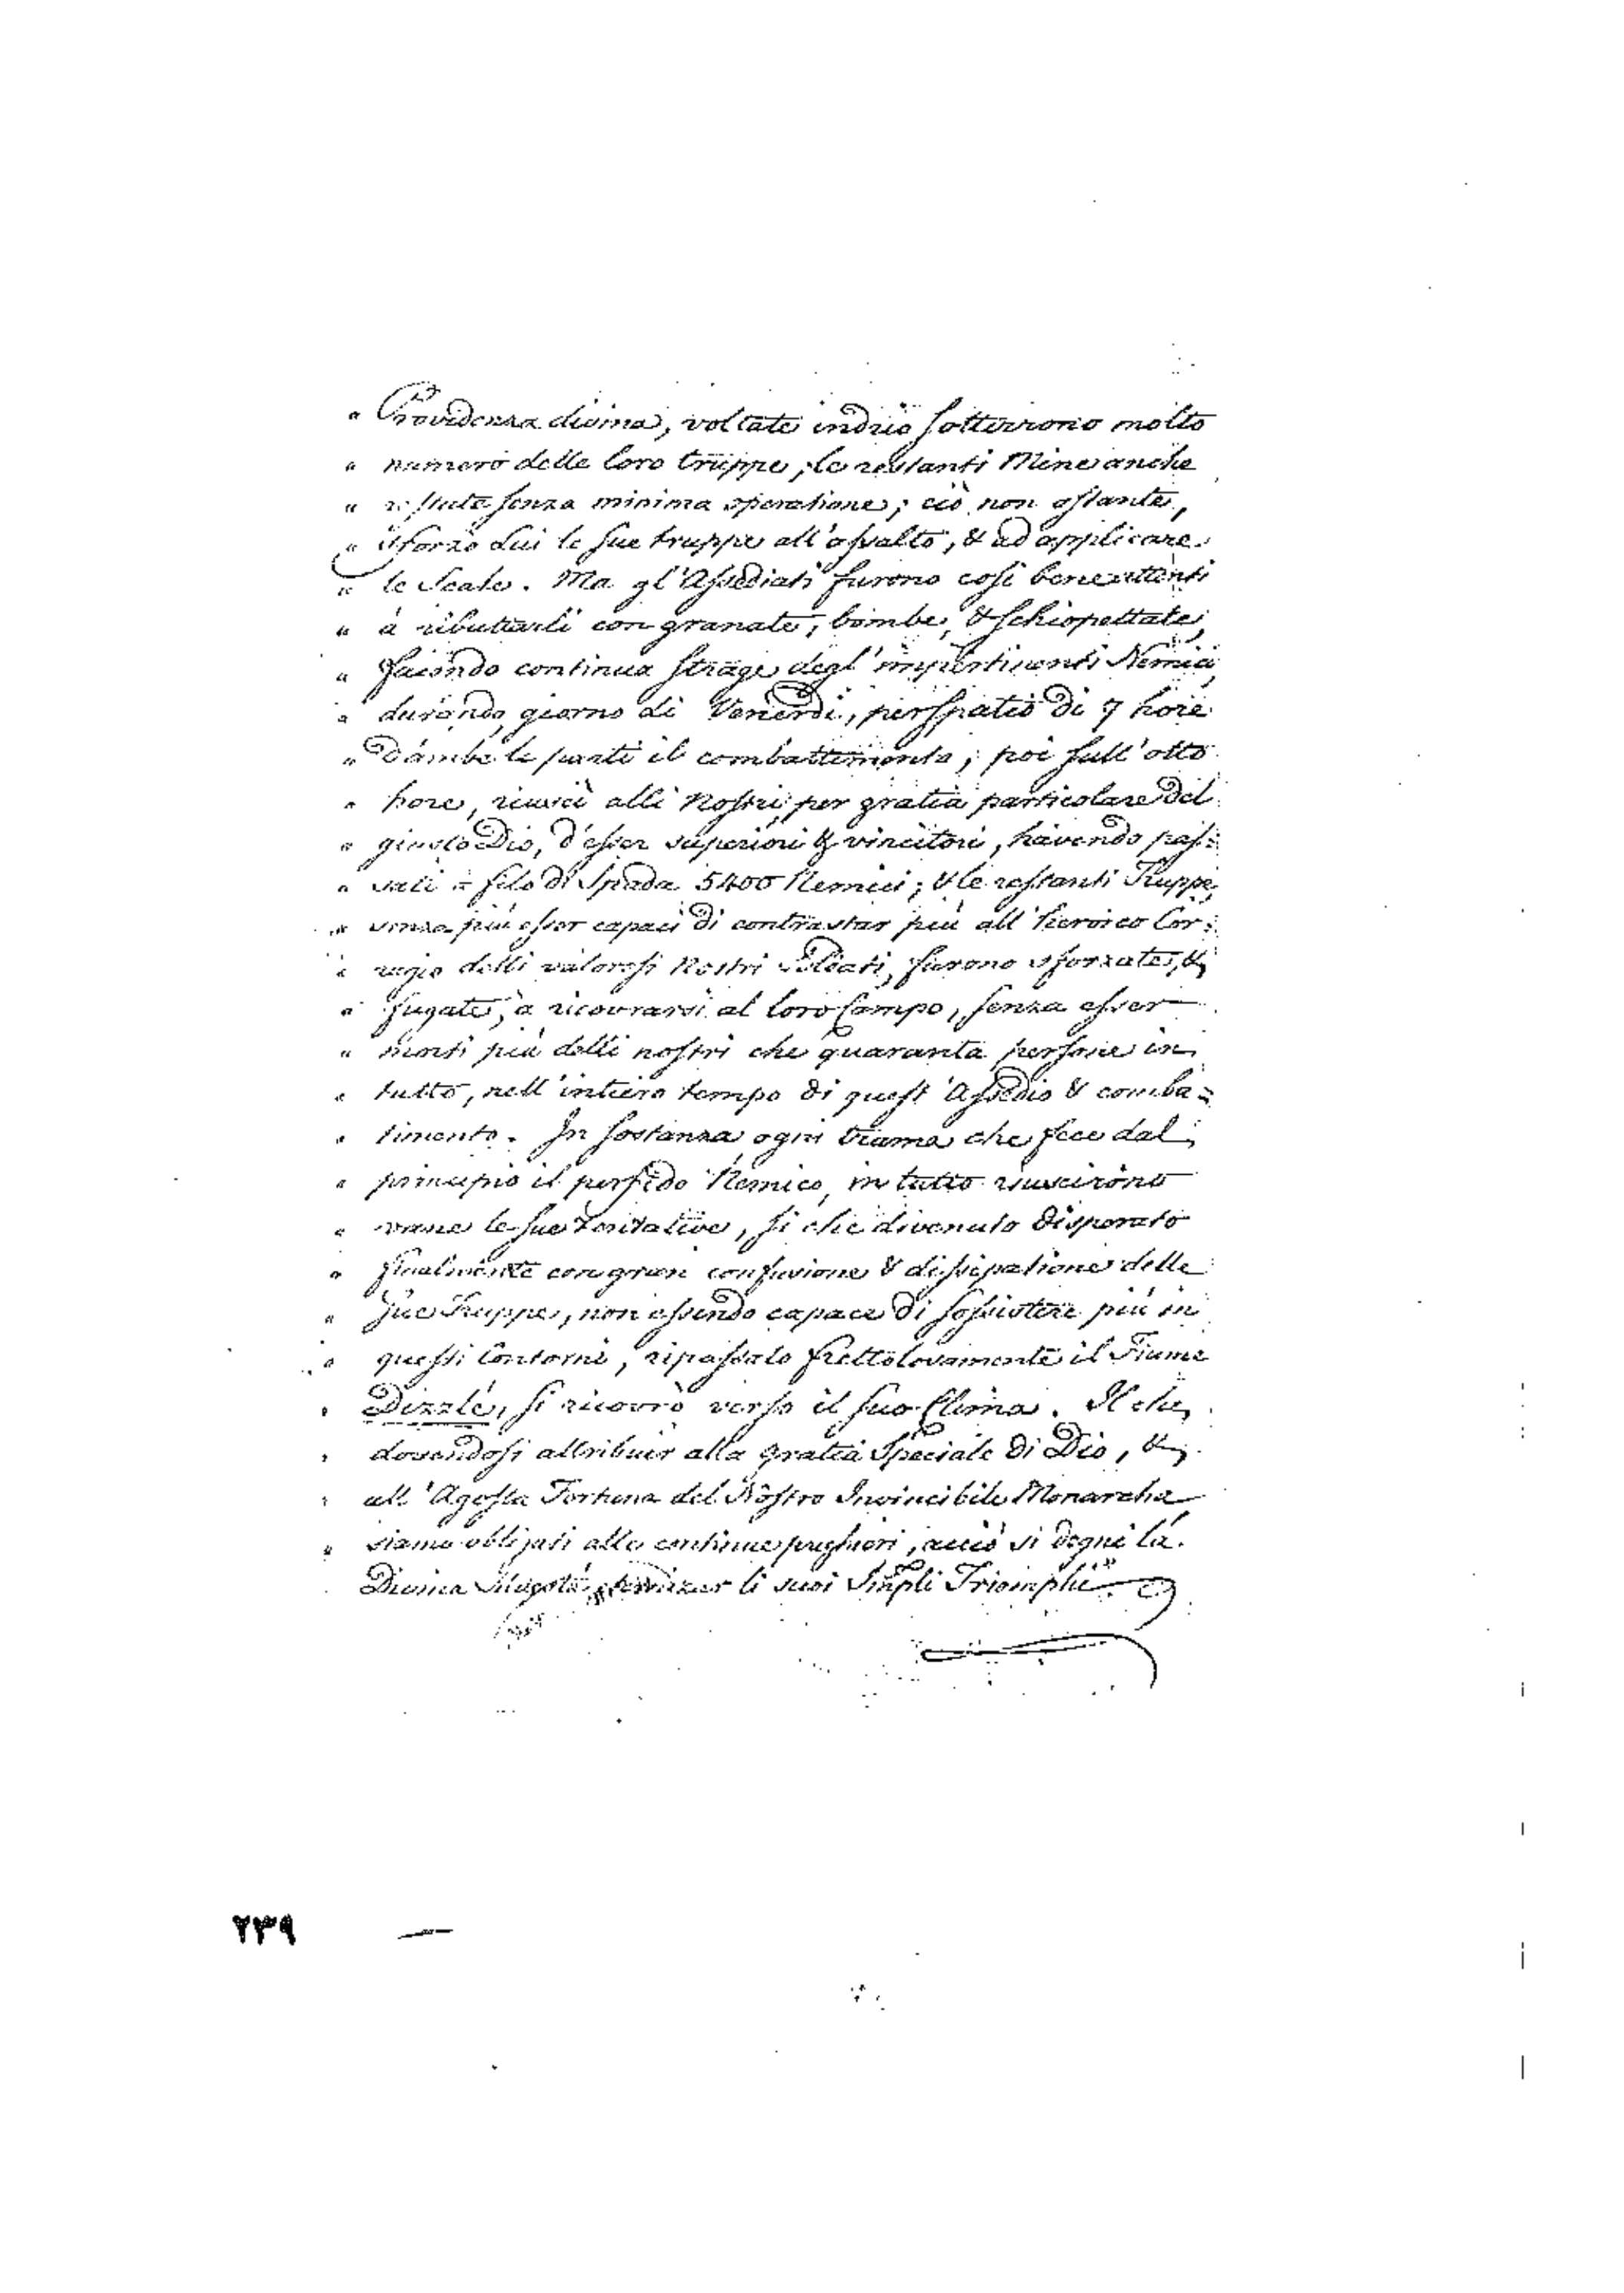 " Providenza divina, voltate indrio sotterrono molto
" numero delle loro truppe, le restanti Mine anche
" restate senza minima operatione; ciò non ostante,
" sforzo lui le sue truppe all'assalto, & ad applicare
" le Scale. Ma gl'Assediati furono cosi bene attenti
" à ributtarli con granate, bombe, & schiopettate,
" facendo continua strage degl'impertinenti Nemici,
" durando, giorno di Venerdi, per spatio di 7 hore
" d'ambe le parti il combattimento; poi sull'otto
" hore, riusci alli Nostri, per gratia particolare del
" giusto Dio, d'esser superiori & vincitori, havendo pas=
" sati à filo di Spada 5400 Nemici; & le restanti Truppe,
" senza più esser capaci di contrastar più all'heroico Cor=
" ragio delli valorosi Nostri Soldati, furono sforzate, &
" fugate, à ricovrarsi al loro Campo, senza esser
" morti più delli nostri che quaranta persone in
" tutto, nell'intiero tempo di quest'Assedio & comba=
" timento. In sostanza, ogni trama che fece dal
" principio il perfido Nemico, in tutto riuscirono
" vane le sue tentative, si che divenuto disperato
" finalmente con gran confusione & dissipatione delle
" sue Truppe, non essendo capace di sossistere più in
" questi Contorni, ripassato frettolosamente il Fiume
" Dizzle, si ricovrò verso il suo Clima. Il che,
" dovendosi attribuir alla gratia Speciale di Dio, &
" all'Agosta Fortuna del Nostro Invincibile Monarcha
" siamo obligati alle continue preghieri, acciò si degni la
Divina Maestà li suoi Simpli Triomphi"
٢٣٩